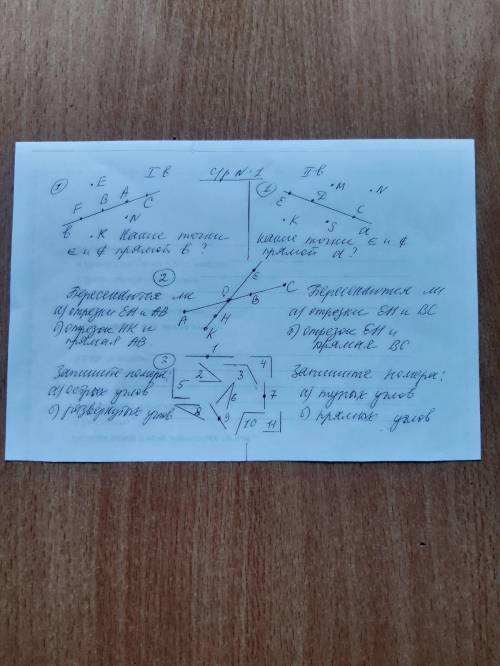 I в с/р № 1 II в
1
E
F B A C
N
в K Какие точки
∈ и ∉ прямой в?
1
M N
E D C
K S a
какие точки ∈ и ∉
прямой a?
2
Пересекаются ли
а) отрезки EH и AB
б) отрезок HK и
прямая AB
E
O B C
A H
K
Пересекаются ли
а) отрезки EH и BC
б) отрезок EH и
прямая BC
3
Запишите номера:
а) острых углов
б) развернутых углов
1
2 3 4
5 6 7
8 9 10 11
Запишите номера:
а) тупых углов
б) прямых углов